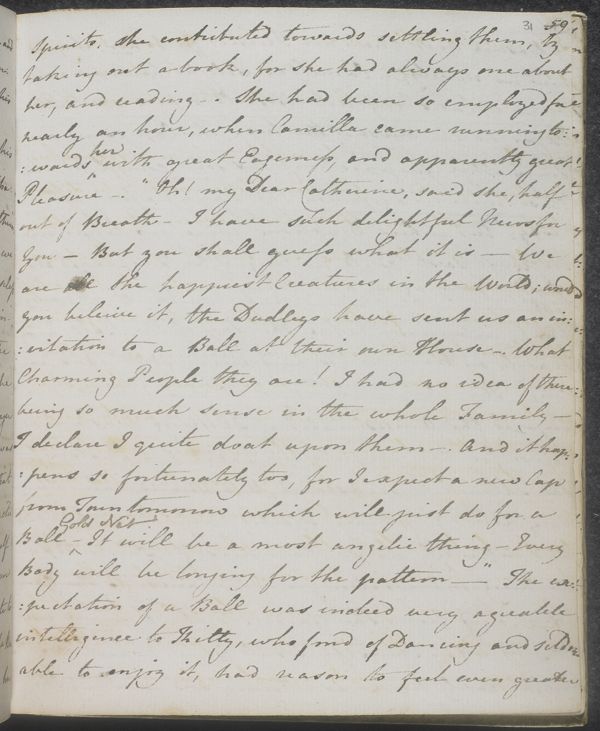 31 59
spirits, she contributed towards settling them, by
taking out a book, for she had always one about
her, and reading -. She had been so employed for
nearly an hour, when Camilla came running to:
:wards her with great Eagerness, and apparently great
Pleasure -. "Oh! my Dear Catherine, said she, half
out of Breath - I have such delightful News for
You - But you shall guess what it is - We
are all the happiest Creatures in the World; would
you beleive it, the Dudleys have sent us an in:
:vitation to a Ball at their own House -. What
Charming People they are! I had no idea of there
being so much sense in the whole Family -
I declare I quite doat upon them -. And it hap:
:pens so fortunately too, for I expect a new Cap
from Town tomorrow which will just do for a
Ball - Gold Net It will be a most angelic thing - Every
Body will be longing for the pattern -" The ex:
:pectation of a Ball was indeed very agreable
intelligence to Kitty, who fond of Dancing and seldom
able to enjoy it, had reason to feel even greater